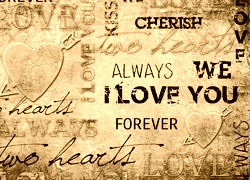 FOREVER
KISS
CHERISH
LOVE
two hearts
I LOVE YOU
ALWAYS WE
I LOVE YOU
hearts
FOREVER
ALWAYS
ALWAYS
two hearts
LOVE